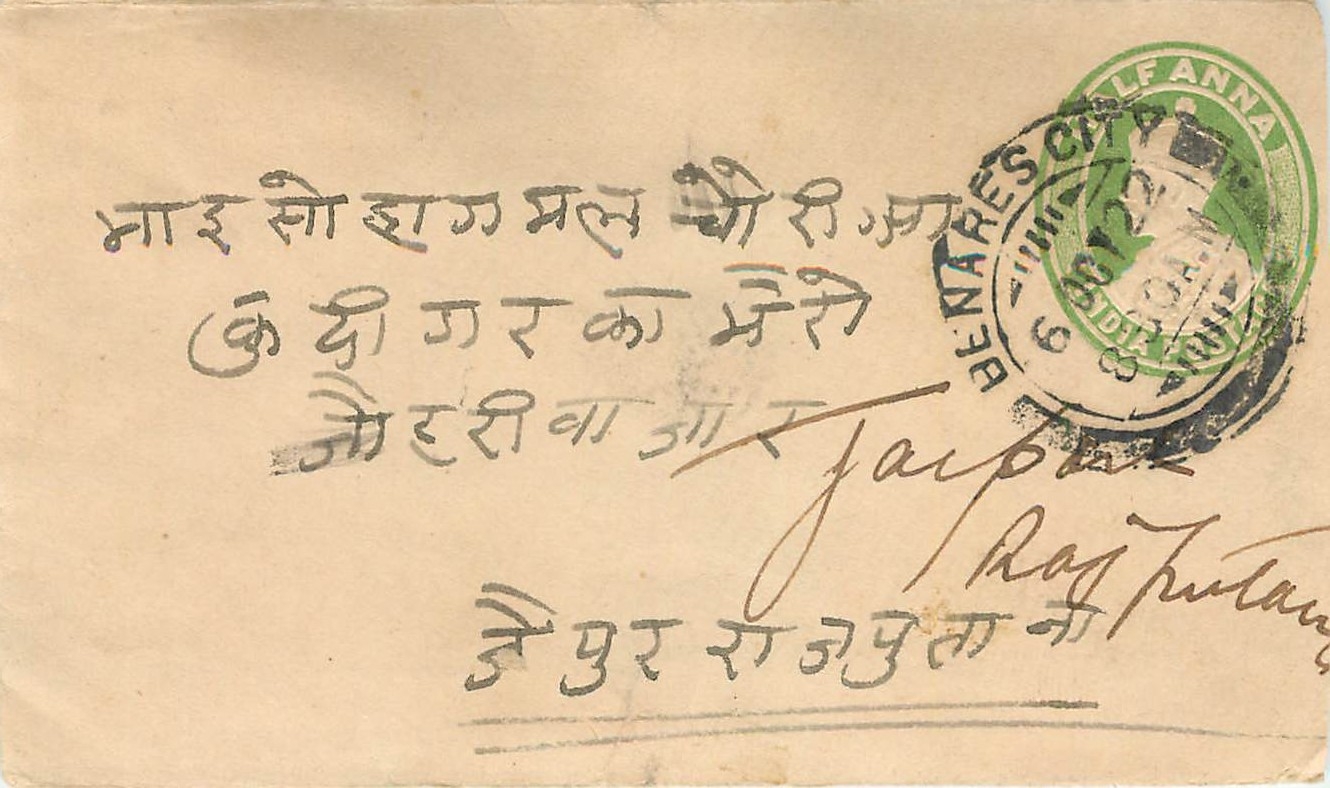 HALF ANNA
INDIA POSTAGE
BENARES CITY
9 OCT 22
8
10 A.M
भाइ सोहागमल चौरीआ
कुंदीगर का भैरो
जौहरी बाजार
Jaipur
Rajputana
जैपुर राजपुताना